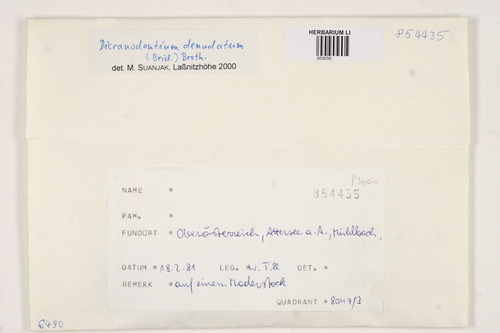 Dicranodontium denudatum
(Brid.) Broth.
det. M. SUANJAK, Laßnitzhöhe 2000
HERBARIUM LI
854435
NAME *
854435
FAM. *
FUNDORT * Oberösterreich, Attersee a. A., Mühlbach,
DATUM * 18.2.81 LEG. * DET. *
BEMERK * auf einem Moderstock
QUADRANT * 8047/3